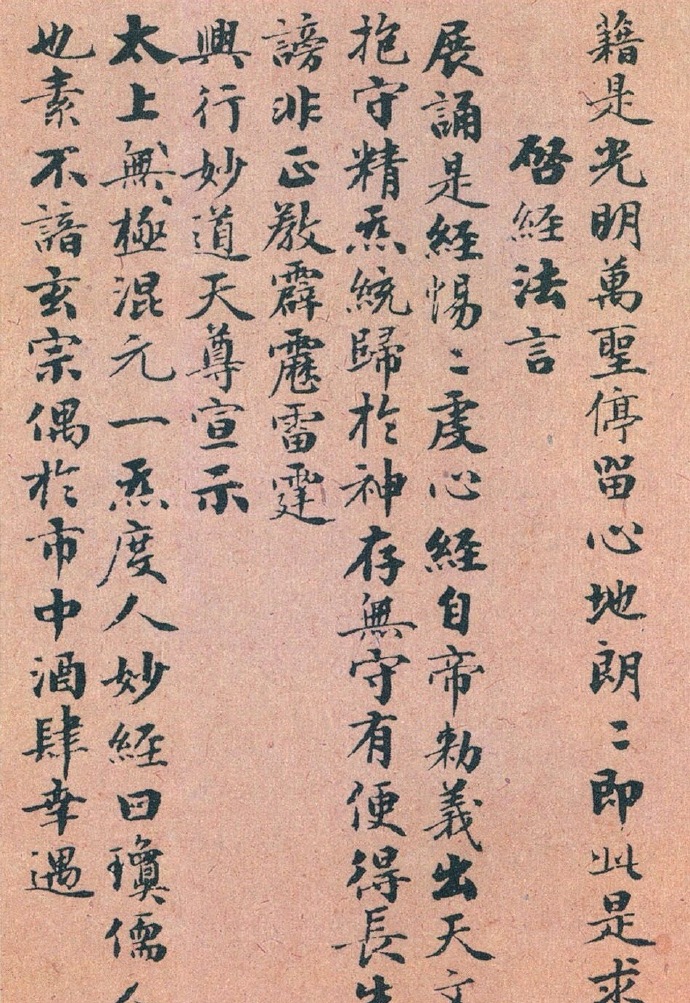 籍是光明萬聖停留心地朗〻即此是求
啓經法言
展誦是經惕〻虔心經自帝勅義出天文
抱守精炁統歸於神存無守有便得長生
謗非正教霹靂雷霆
興行妙道天尊宣示
太上無極混元一炁度人妙經曰瓊儒人
也素不諳玄宗偶於市中酒肆幸遇